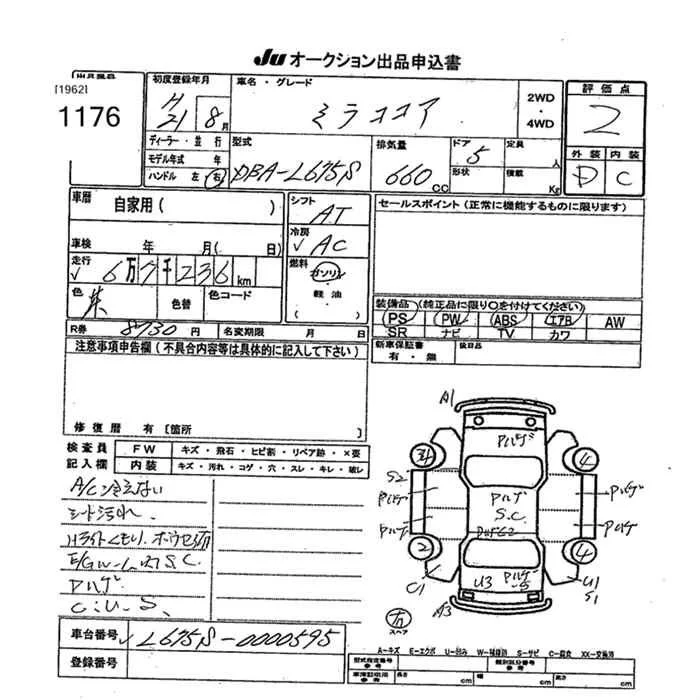 JU オークション出品申込書
出品番号
[1962]
1176
初度登録年月
H
21 8月
車名・グレード
ミラココア
2WD
・
4WD
評価点
2
外装 内装
D C
ディーラー・並行
モデル年式 年
ハンドル 左 右
型式
DBA-L675S
排気量
660 CC
ドア
5
形状
定員
人
積載
Kg
車歴
自家用( )
車検 年 月( 日)
走行
✓ 6万7千236 km
色
朱
色替
色コード
R券 8730 円 名変期限 月 日
シフト
AT
冷房
✓ AC
燃料
ガソリン
・
軽油
( )
セールスポイント(正常に機能するものに限ります)
装備品(純正品に限り○を付けてください)
PS PW ABS エアB AW
SR ナビ TV カワ
新車保証書
有・無
後日品
注意事項申告欄(不具合内容等は具体的に記入して下さい)
修復歴 有[箇所 ]
検査員
記入欄
FW キズ・飛石・ヒビ割・リペア跡・X要
内装 キズ・汚れ・コゲ・穴・スレ・キレ・破レ
A/C冷えない
シート汚れ.
Hライトくもり.
S.C.
Pハゲ
C.U.S.
車台番号 ✓ L675S-0000595
登録番号
A1
34
4
S2
Pハゲ
Pハゲ
Pハゲ
Pハゲ
S.C.
Pハゲ
Pハゲ
2
4
C1
U3
Pハゲ
S
U1
S1
A3
スペア
A-キズ E-エクボ U-凹み W-補修跡 S-サビ C-腐食 XX-交換済
型式指定番号
参考
類別区分番号
参考
車庫証明用
参考
長さ cm 幅 cm 高さ cm